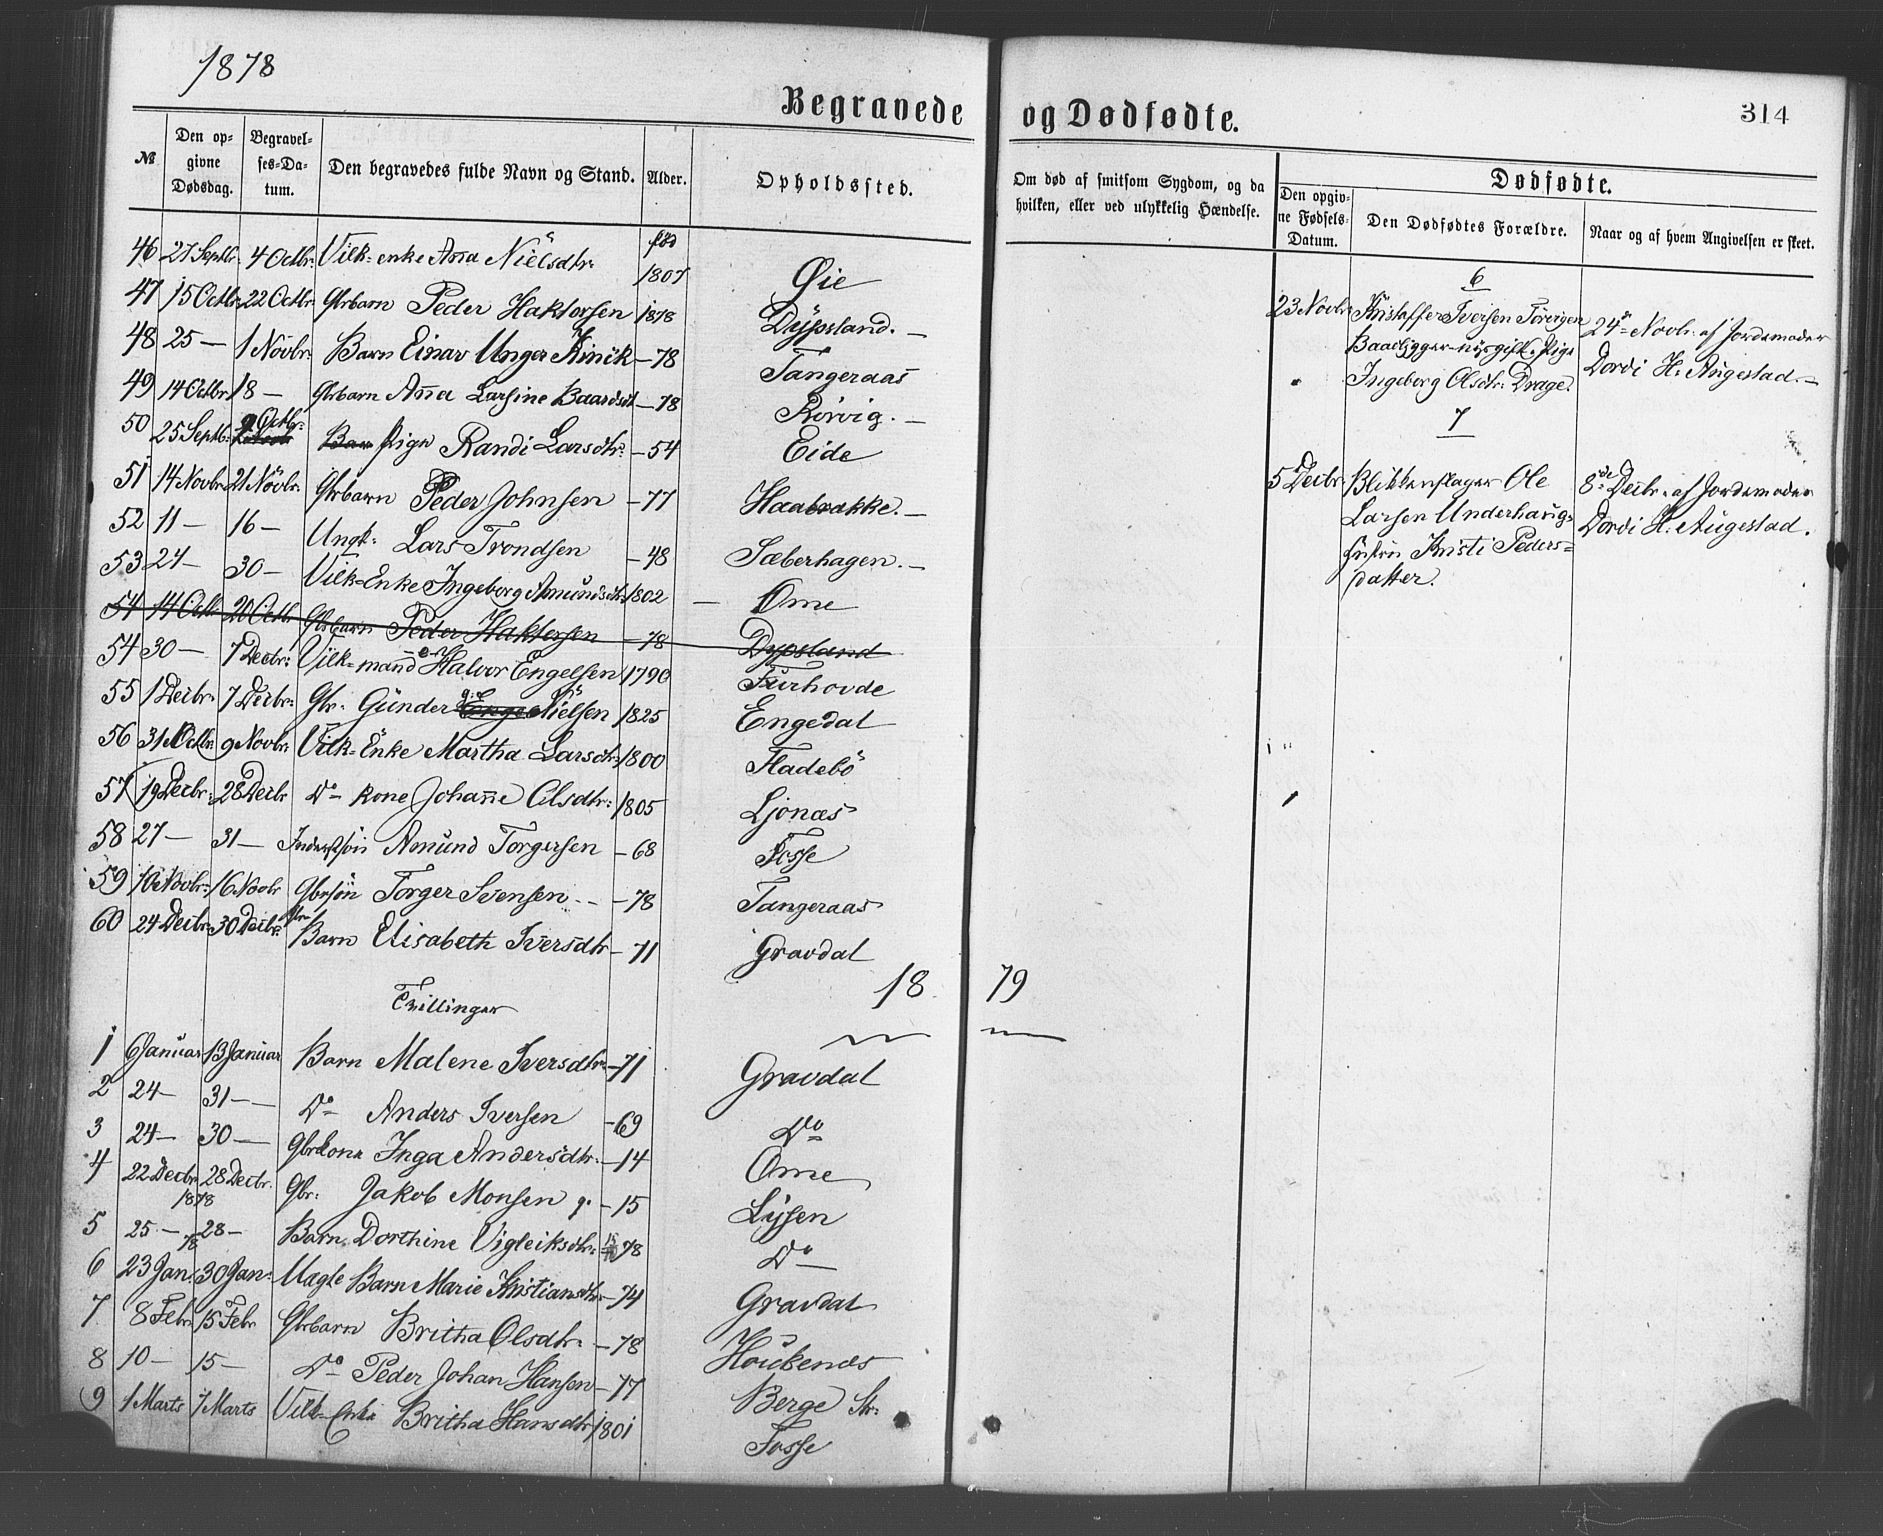 1878
Begravede og Dødfødte.
314
№
Den opgivne Dødsdag.
Begravelses-Datum.
Den begravedes fulde Navn og Stand.
Alder.
Opholdssted.
Om død af smitsom Sygdom, og da hvilken, eller ved ulykkelig Hændelse.
Dødfødte.
Den opgivne Fødsels-Datum.
Den Dødfødtes Forældre.
Naar og af hvem Angivelsen er skeet.
fød
46 27 Septbr. 4 Octbr: Vilk-enke Anna Nielsdtr: 1807 Øie
47 15 Octbr: 22 Octbr: Gbrbarn Peder Haktorsen 1878 Dypsland. —
48 25 — 1 Novbr: Barn Einar Unger Kinck — 78 Tangeraas
49 14 Octbr 18 — Gbrbarn Anna Larsine Baardsdt — 78 Rörvig. —
50 25 Septbr: 9 Octbr: Pige Randi Larsdtr: — 54 Eide
51 14 Novbr: 21 Növbr: Gbrbarn Peder Johnsen — 77 Haabrakke. —
52 11 — 16 — Ungk: Lars Trondsen — 48 Sæberhagen. —
53 24 — 30 — Vilk-Enke Ingeborg Amundsdtr: 1802 — Ome
54 14 Octbr 20 Octbr Gbrbarn Peder Haktorsen — 78 Dypsland
54 30 — 7 Decbr: Vilk-mand Halvor Engelsen 1790 Furhovde
55 1 Decbr: 7 Decbr: Gbr: Günder Nielsen 1825 Engedal
56 31 Octbr: 9 Novbr: Vilk-Enke Martha Larsdtr: 1800 Fladebö
57 19 Decbr: 28 Decbr Do kone Johanne Olsdtr: 1805 Ljonæs
58 27 — 31 — Inderstsön Amund Torgersen — 68 Fosse
59 10 Novbr: 16 Novbr Gbrsön Torger Svensen — 78 Tangeraas
60 24 Decbr: 30 Decbr: Gbr: Barn Elisabeth Iversdtr — 71 Gravdal
18 79
Tvillinger
1 6 Januar 13 Januar Barn Malene Iversdtr: — 71 Gravdal
2 24 — 31 — Do Anders Iversen — 69 Do
3 24 — 30 — Gbrkone Inga Andersdtr: — 14 Ome
4 22 Decbr 1878 28 Decbr. Gbr: Jakob Monsen g. — 15 Lysen
5 25 — 78 28 — Barn Dorthine Vigleiksdtr: 78 Do —
6 23 Jan: 30 Jan: Uægte Barn Marie Kristiansdtr — 74 Gravdal
7 8 Febr 15 Febr Gbrbarn Britha Olsdtr. — 78 Houkenes
8 10 — 15 — Do Peder Johan Hansen — 77 Berge Str:
9 1 Marts 7 Marts Vilk-Enke Britha Hansdtr 1801 Fosse
6
23 Novbr: Kristoffer Iversen Torvigen
Baadligger — Pige
Ingeborg Olsdtr: Drage.
24de Novbr. af Jordemoder
Dordi H: Augestad. —
7
5 Decbr Blikkenslager Ole
Larsen Underhaug-
Hustru Kristi Peders=
datter.
8de Decbr. af Jordemoder
Dordi H. Augestad.